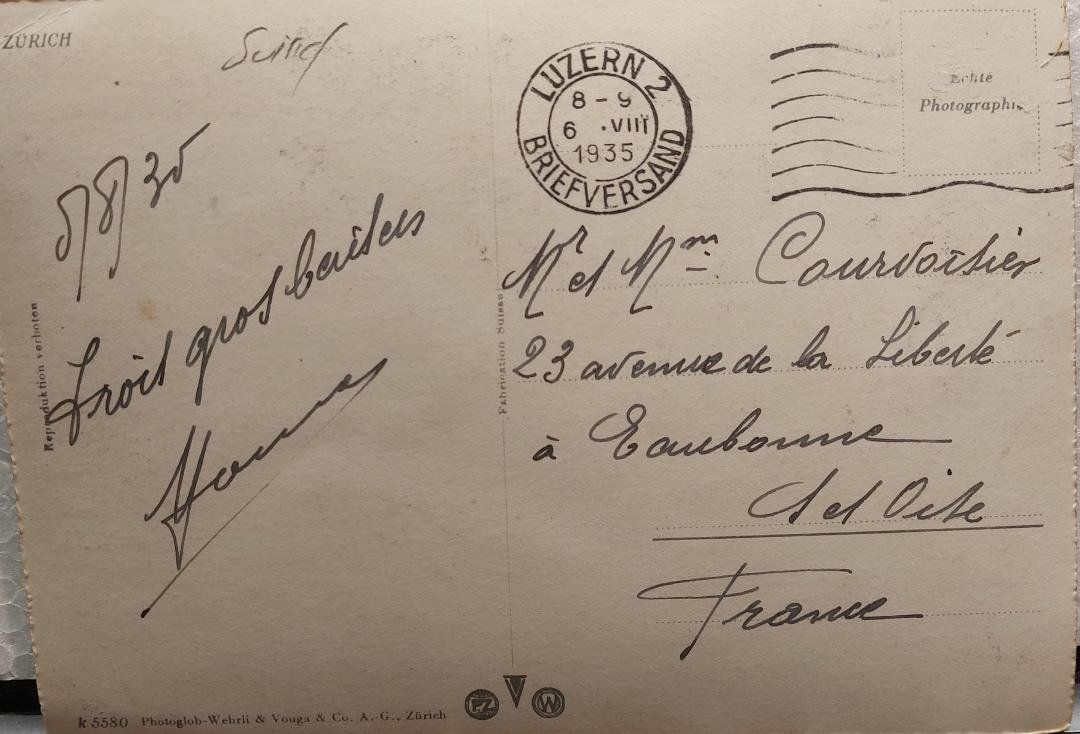 ZÜRICH
5/8/35
Trois gros baisers
LUZERN 2
8-9
6 .VIII
1935
BRIEFVERSAND
Echte
Photographie
Mr et Mme Courvoisier
23 avenue de la Liberté
à Eaubonne
S et Oise
France
Reproduktion verboten
Fabrication Suisse
k 5580 Photoglob-Wehrli & Vouga & Co. A.-G., Zürich
PZ
W